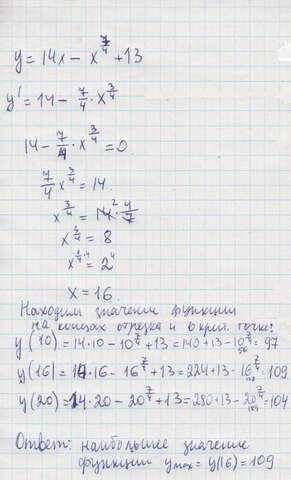 y = 14x - x^(7/4) + 13
y' = 14 - 7/4 · x^(3/4)
14 - 7/4 · x^(3/4) = 0
7/4 x^(3/4) = 14
x^(3/4) = 14 2 · 4/7
x^(3/4) = 8
x^(1/4 · 4) = 2^4
x = 16.
Находим значение функции
на концах отрезка и в крит. точке:
y (10) = 14·10 - 10^(7/4) + 13 = 140 + 13 - 10^(7/4) = 97
56
y (16) = 14·16 - 16^(7/4) + 13 = 224 + 13 - 16^(7/4) = 109
128
y (20) = 14·20 - 20^(7/4) + 13 = 280 + 13 - 20^(7/4) = 104
189
Ответ: наибольшее значение
функции y max = y(16) = 109